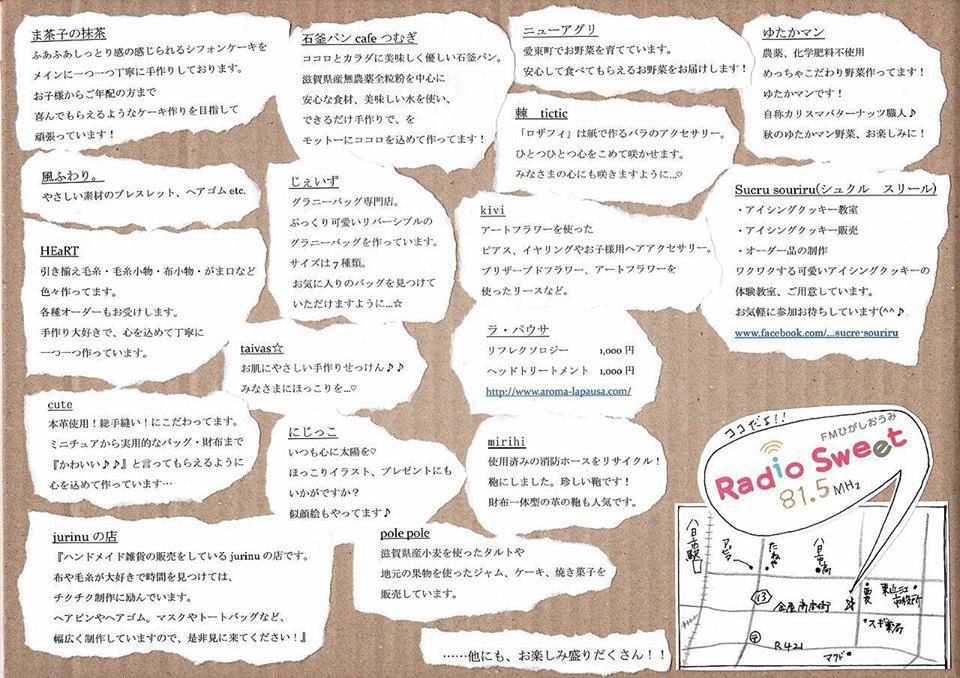 ま茶子の抹茶
ふあふあしっとり感の感じられるシフォンケーキを
メインに一つ一つ丁寧に手作りしております。
お子様からご年配の方まで
喜んでもらえるようなケーキ作りを目指して
頑張っています！
石釜パン cafe つむぎ
ココロとカラダに美味しく優しい石釜パン。
滋賀県産無農薬全粒粉を中心に
安心な食材、美味しい水を使い、
できるだけ手作りで、を
モットーにココロを込めて作ってます！
ニューアグリ
愛東町でお野菜を育てています。
安心して食べてもらえるお野菜をお届けします！
ゆたかマン
農薬、化学肥料不使用
めっちゃこだわり野菜作ってます！
ゆたかマンです！
自称カリスマバターナッツ職人♪
秋のゆたかマン野菜、お楽しみに！
棘　tictic
「ロザフィ」は紙で作るバラのアクセサリー。
ひとつひとつ心をこめて咲かせます。
みなさまの心にも咲きますように…♡
風ふわり。
やさしい素材のブレスレット、ヘアゴム etc.
じぇいず
グラニーバッグ専門店。
ぷっくり可愛いリバーシブルの
グラニーバッグを作っています。
サイズは７種類。
お気に入りのバッグを見つけて
いただけますように…☆
kivi
アートフラワーを使った
ピアス、イヤリングやお子様用ヘアアクセサリー。
プリザーブドフラワー、アートフラワーを
使ったリースなど。
Sucru souriru(シュクル　スリール)
・アイシングクッキー教室
・アイシングクッキー販売
・オーダー品の制作
ワクワクする可愛いアイシングクッキーの
体験教室、ご用意しています。
お気軽に参加お待ちしています(^^♪
www.facebook.com/...sucre-souriru
HEaRT
引き揃え毛糸・毛糸小物・布小物・がま口など
色々作ってます。
各種オーダーもお受けします。
手作り大好きで、心を込めて丁寧に
一つ一つ作っています。
taivas☆
お肌にやさしい手作りせっけん♪♪
みなさまにほっこりを…♡
ラ・パウサ
リフレクソロジー　1,000 円
ヘッドトリートメント　1,000 円
http://www.aroma-lapausa.com/
cute
本革使用！総手縫い！にこだわってます。
ミニチュアから実用的なバッグ・財布まで
『かわいい♪♪』と言ってもらえるように
心を込めて作っています…
にじっこ
いつも心に太陽を♡
ほっこりイラスト、プレゼントにも
いかがですか？
似顔絵もやってます♪
mirihi
使用済みの消防ホースをリサイクル！
鞄にしました。珍しい鞄です！
財布一体型の革の鞄も人気です。
jurinu の店
『ハンドメイド雑貨の販売をしている jurinu の店です。
布や毛糸が大好きで時間を見つけては、
チクチク制作に励んでいます。
ヘアピンやヘアゴム。マスクやトートバッグなど、
幅広く制作していますので、是非見に来てください！』
pole pole
滋賀県産小麦を使ったタルトや
地元の果物を使ったジャム、ケーキ、焼き菓子を
販売しています。
……他にも、お楽しみ盛りだくさん！！
ココだよ！！
FMひがしおうみ
Radio Sweet
81.5 MHz
八日市駅
アピア
たねや
八日市局
13
金屋商店街
東近江
市役所
スギ薬局
〒
R421
マクド